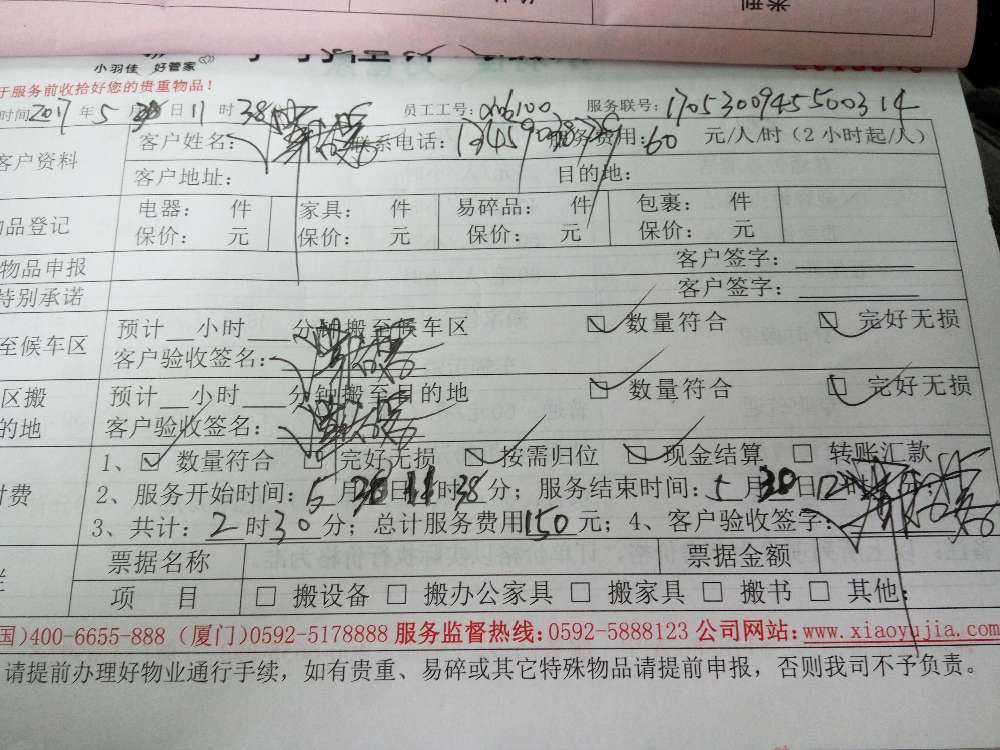 类型
小羽佳 好管家
于服务前收拾好您的贵重物品！
时间2017年5月30日11时38 员工工号： 服务联号：1705300945500314
客户资料 客户姓名： 联系电话： 服务费用：60 元/人/时（2小时起/人）
客户地址： 目的地：
物品登记 电器： 件 家具： 件 易碎品： 件 包裹： 件
保价： 元 保价： 元 保价： 元 保价： 元
物品申报 客户签字：
特别承诺 客户签字：
至候车区 预计 小时 分钟搬至候车区 ☑ 数量符合 ☑ 完好无损
客户验收签名：
区搬 预计 小时 分钟搬至目的地 ☑ 数量符合 ☑ 完好无损
的地 客户验收签名：
付费 1、☑ 数量符合 ☑ 完好无损 ☑ 按需归位 ☑ 现金结算 □ 转账汇款
2、服务开始时间：5月30日11时38分；服务结束时间：5月30日12时
3、共计：2时30分；总计服务费用150元；4、客户验收签字：
票据名称 票据金额
项 目 □ 搬设备 □ 搬办公家具 □ 搬家具 □ 搬书 □ 其他：
国）400-6655-888（厦门）0592-5178888 服务监督热线：0592-5888123 公司网站：www.xiaoyujia.com
请提前办理好物业通行手续，如有贵重、易碎或其它特殊物品请提前申报，否则我司不予负责。